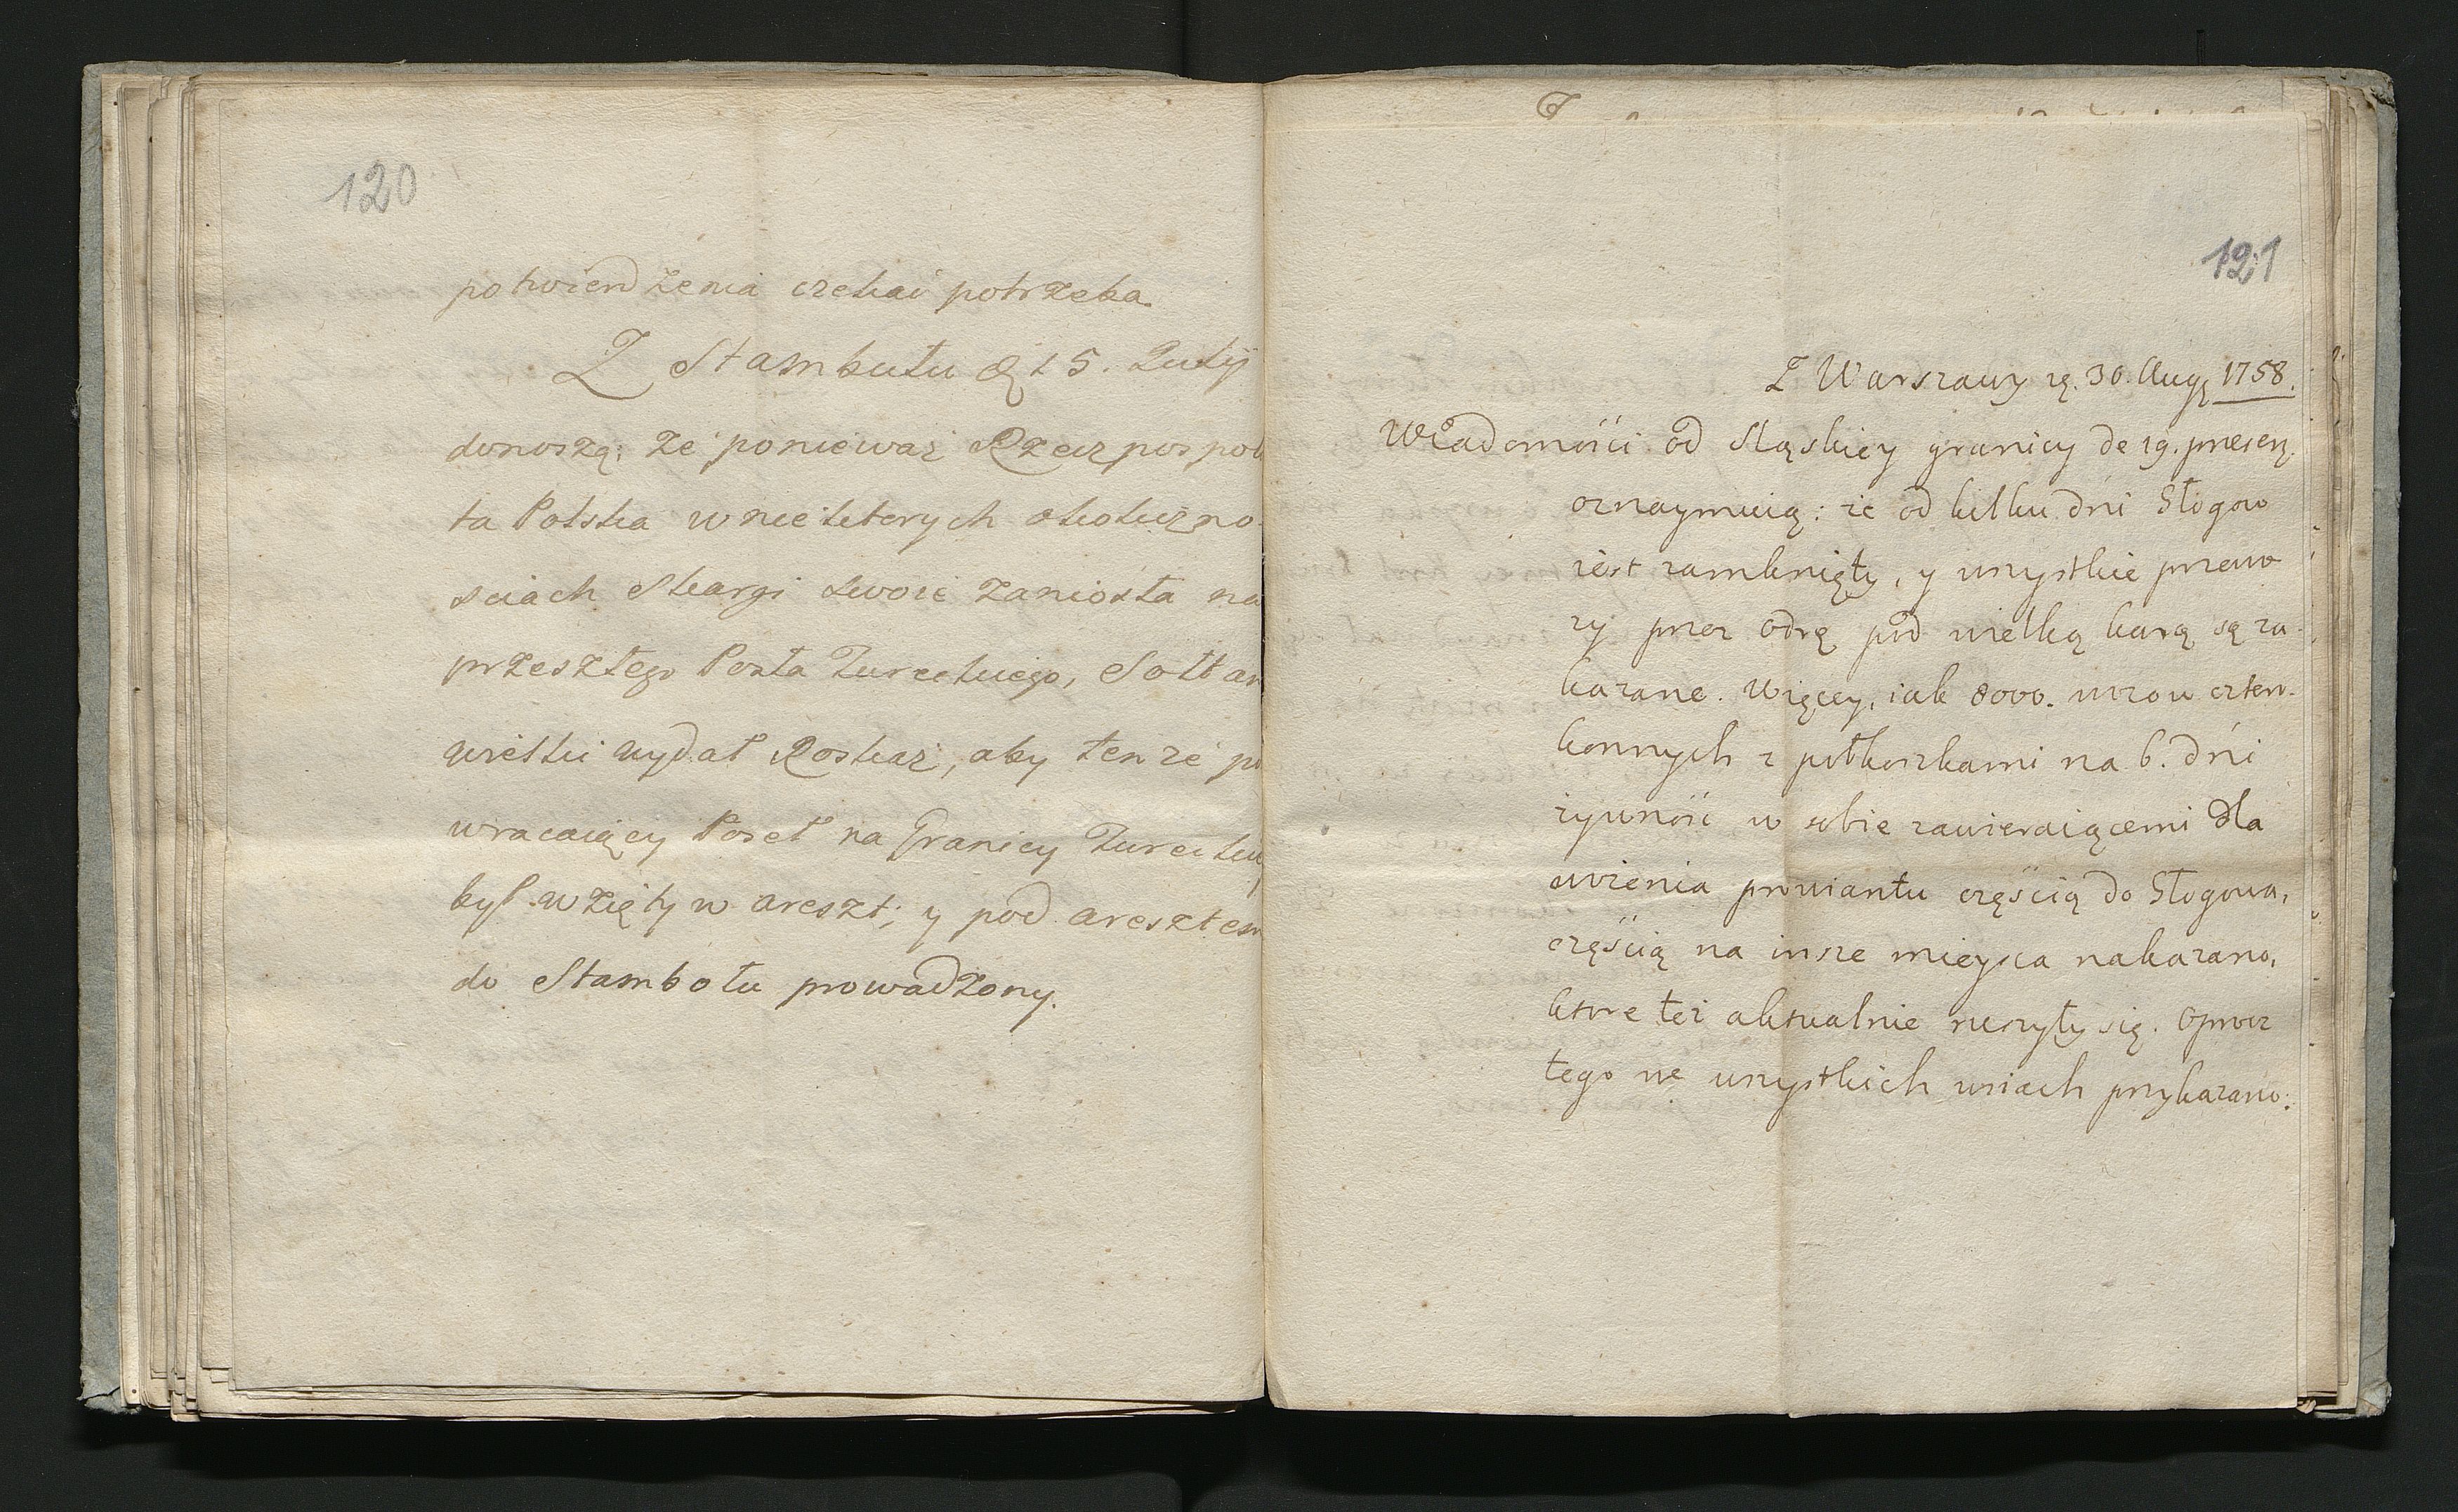 120
potwierdżenia czekać potrzeba.
Z Stambułu d 15. Lutÿ
donoszą: że ponieważ Rzeczpospoli
ta Polska w niektorych okoliczno
sciach Skargi swoie zaniosła na
przeszłego Posła Tureckiego, Sołtan
wielki wydał Roskaz, aby tenże po
wracaiący Poseł na Granicy Turecki
był wzięty w areszt; y pod aresztem
do Stambołu prowadzony.
121
Z Warszawy 30. Aug 1758.
Wiadomości od Sląskiey granicy de 19. presen.
oznaymuią: że od kilku dni Głogow
iest zamknięty, y wszystkie przewo
zy przez Odrę pod wielką karą są za
kazane. Więcey, iak 8000. wozow czter
konnych z połkoszkami na 6. dni
żywność w sobie zawieraiącemi dla
wożenia prowiantu częścią do Głogowa,
częścią na insze mieysca nakazano,
ktore też aktualnie ruszyły się. Oprocz
tego we wszystkich wsiach przykazano: